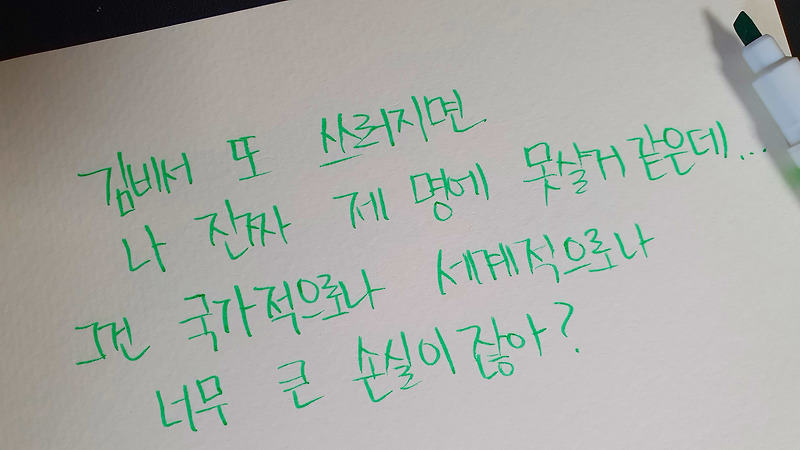 김비서 또 쓰러지면
나 진짜 제 명에 못살거 같은데...
그건 국가적으로나 세계적으로나
너무 큰 손실이잖아?